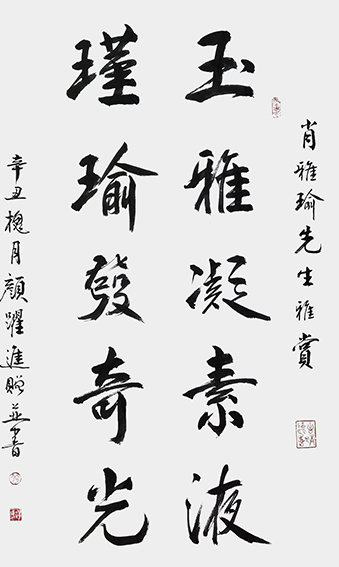 肖雅瑜先生雅賞
玉雅凝素液
瑾瑜發奇光
辛丑櫆月顏躍進贈並書